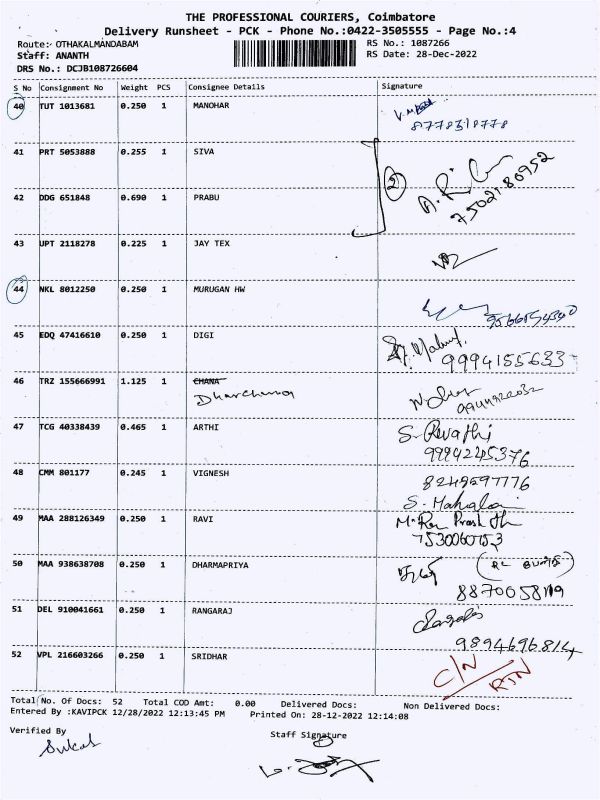 THE PROFESSIONAL COURIERS, Coimbatore
Delivery Runsheet - PCK - Phone No.:0422-3505555 - Page No.:4
Route:- OTHAKALMANDABAM
RS No.: 1087266
Staff: ANANTH
RS Date: 28-Dec-2022
DRS No.: DCJB108726604
S No Consignment No Weight PCS Consignee Details Signature
40 TUT 1013681 0.250 1 MANOHAR
8778318778
41 PRT 5053888 0.255 1 SIVA
2
7502180952
42 DDG 651848 0.690 1 PRABU
43 UPT 2118278 0.225 1 JAY TEX
44 NKL 8012250 0.250 1 MURUGAN HW
45 EDQ 47416610 0.250 1 DIGI
9994155633
46 TRZ 155666991 1.125 1 CHANA
Dharchana
47 TCG 40338439 0.465 1 ARTHI
S. Revathi
9994245376
48 CMM 801177 0.245 1 VIGNESH
8248597776
S. Mahalai
49 MAA 288126349 0.250 1 RAVI
50 MAA 938638708 0.250 1 DHARMAPRIYA
51 DEL 910041661 0.250 1 RANGARAJ
9894696814
52 VPL 216603266 0.250 1 SRIDHAR
C/N
RTN
Total No. Of Docs: 52 Total COD Amt: 0.00 Delivered Docs: Non Delivered Docs:
Entered By :KAVIPCK 12/28/2022 12:13:45 PM Printed On: 28-12-2022 12:14:08
Verified By
Staff Signature